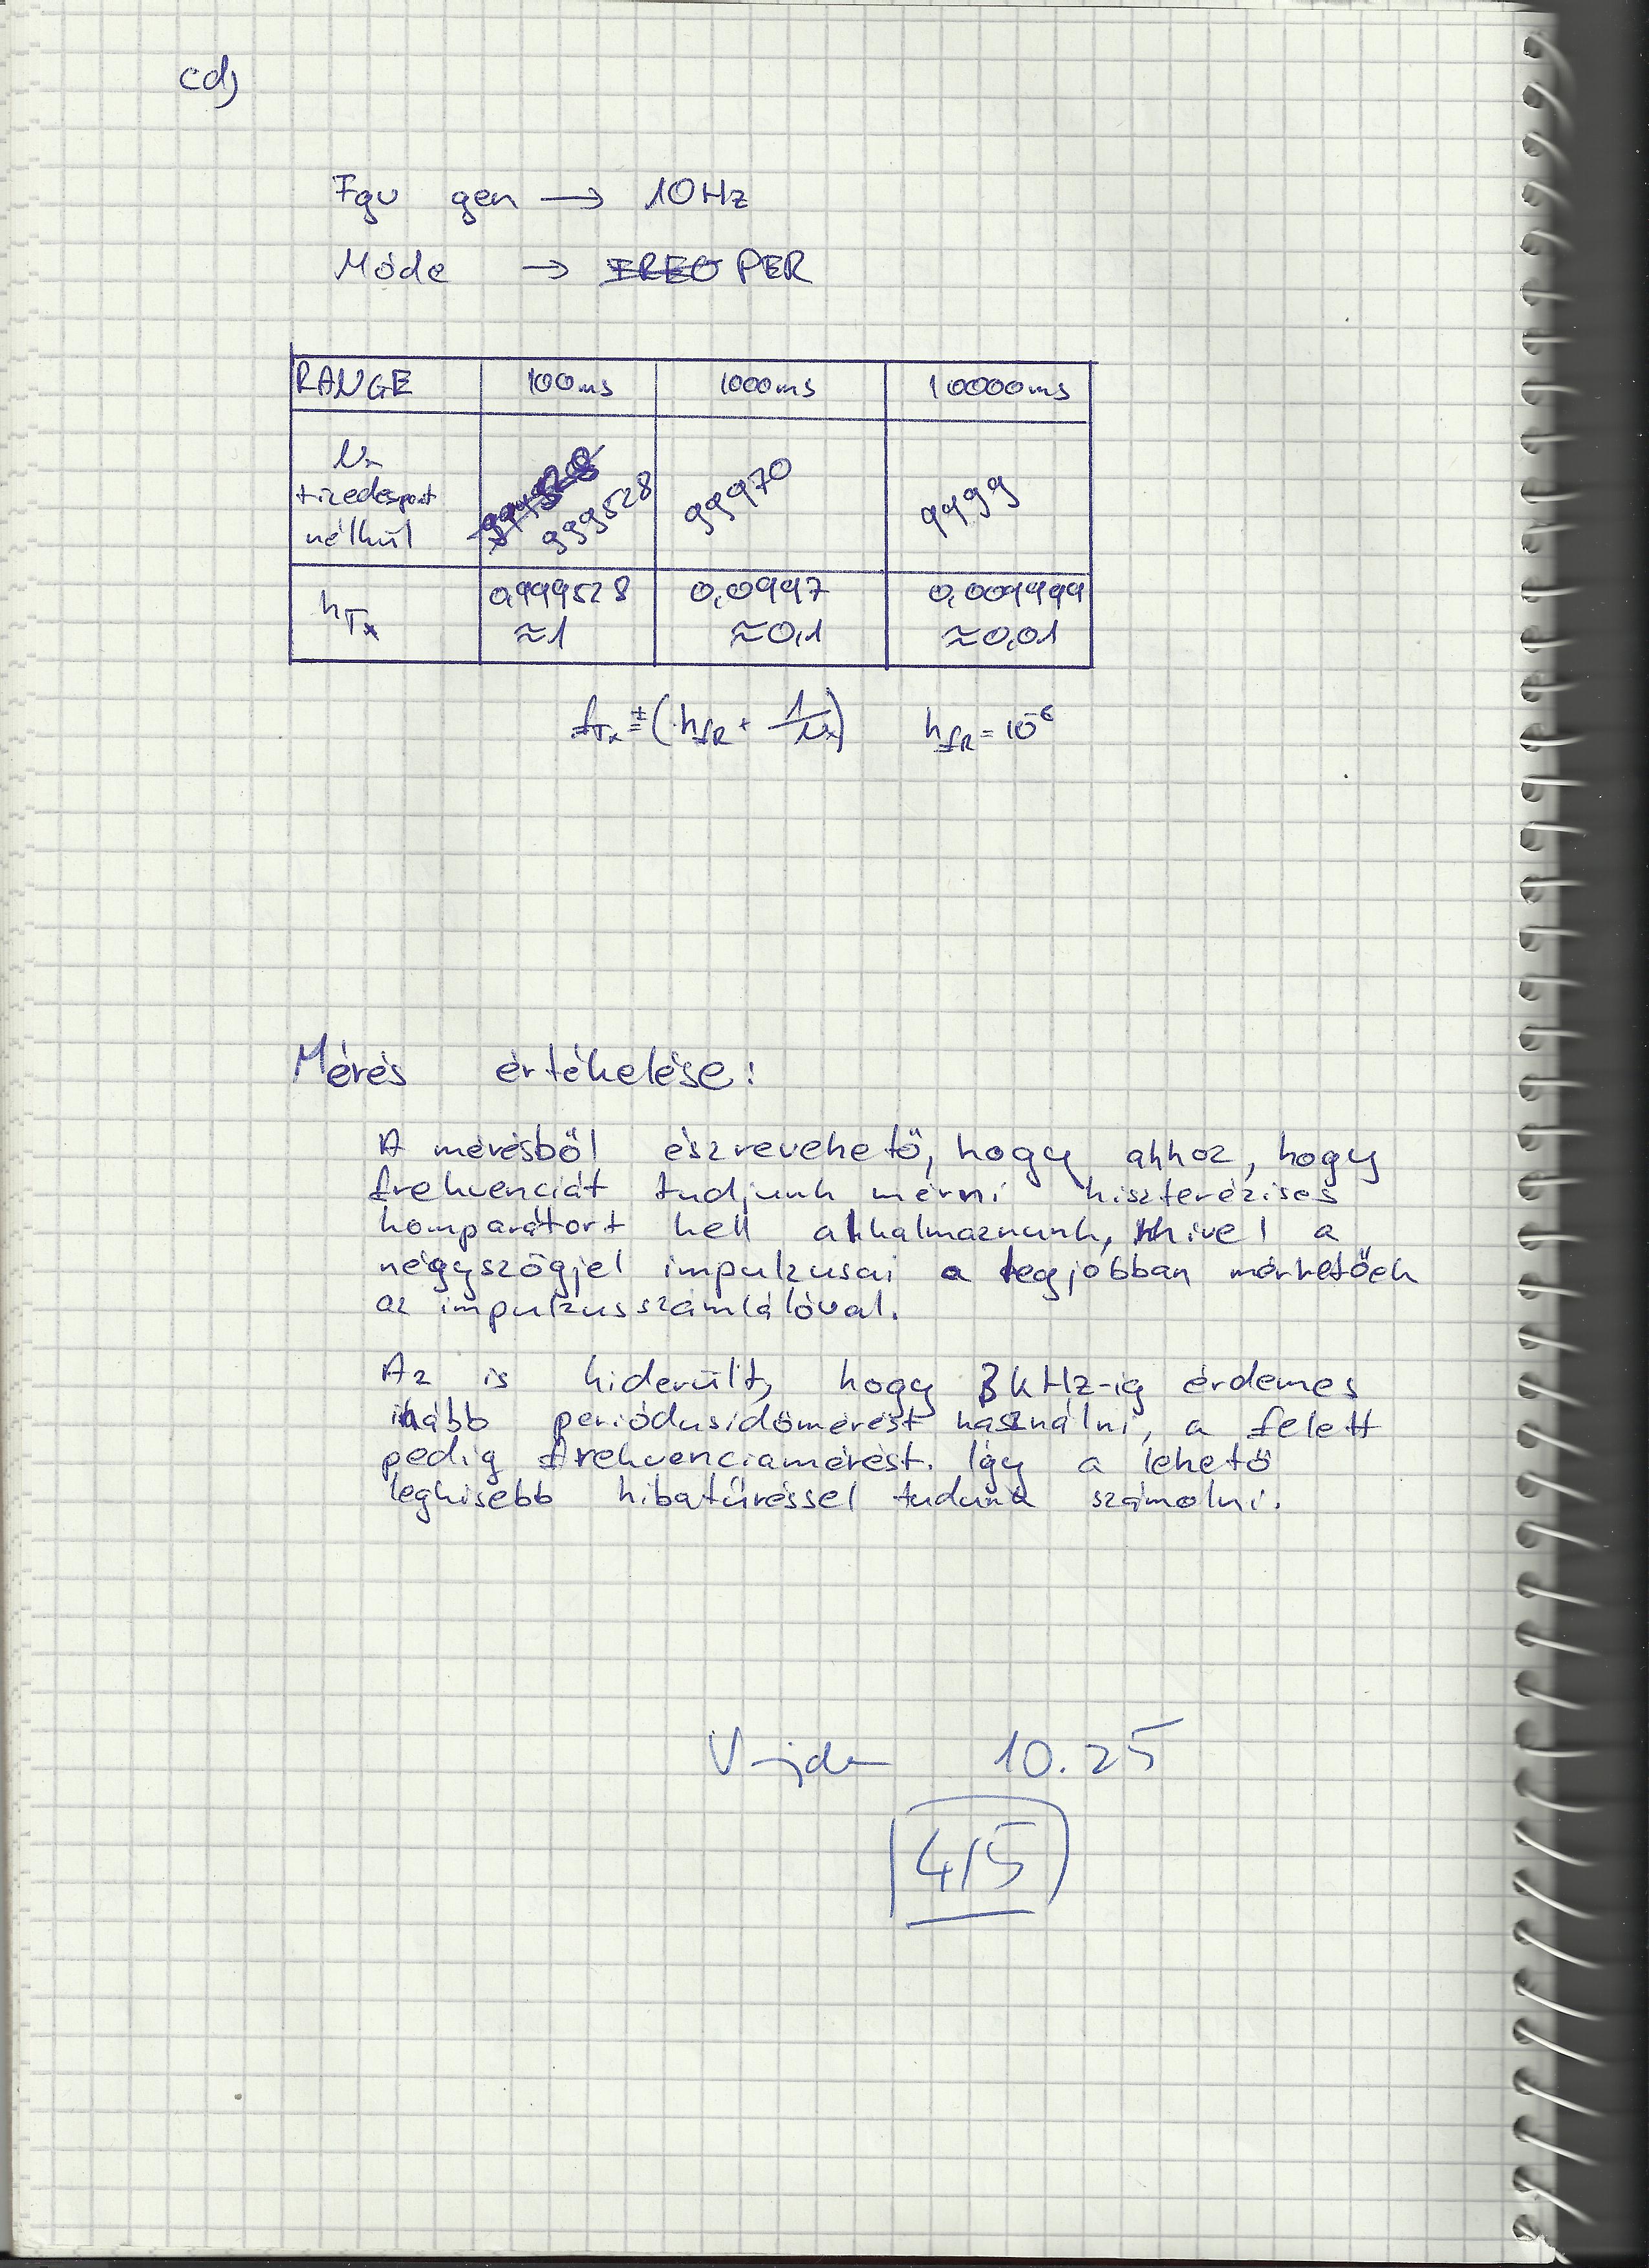 cd)
Fgv gen → 10Hz
Móde → FREQ PER
RANGE 100ms 1000ms 10000ms
Nx tizedespont nélkül 999528 99970 9999
hTx 0,999528 ≈1 0,0997 ≈0,1 0,009999 ≈0,01
hTx = ±(hfR + 1/Nx) hfR = 10⁻⁶
Mérés értékelése:
A mérésből észrevehető, hogy ahhoz, hogy
frekvenciát tudjunk mérni hiszterézises
komparátort kell alkalmaznunk, mivel a
négyszögjel impulzusai a legjobban mérhetőek
az impulzusszámlálóval.
Az is kiderült, hogy 3kHz-ig érdemes
inkább periódusidőmérést használni, a felett
pedig frekvenciamérést. Így a lehető
legkisebb hibatűréssel tudunk számolni.
Vajda 10.25
4/5